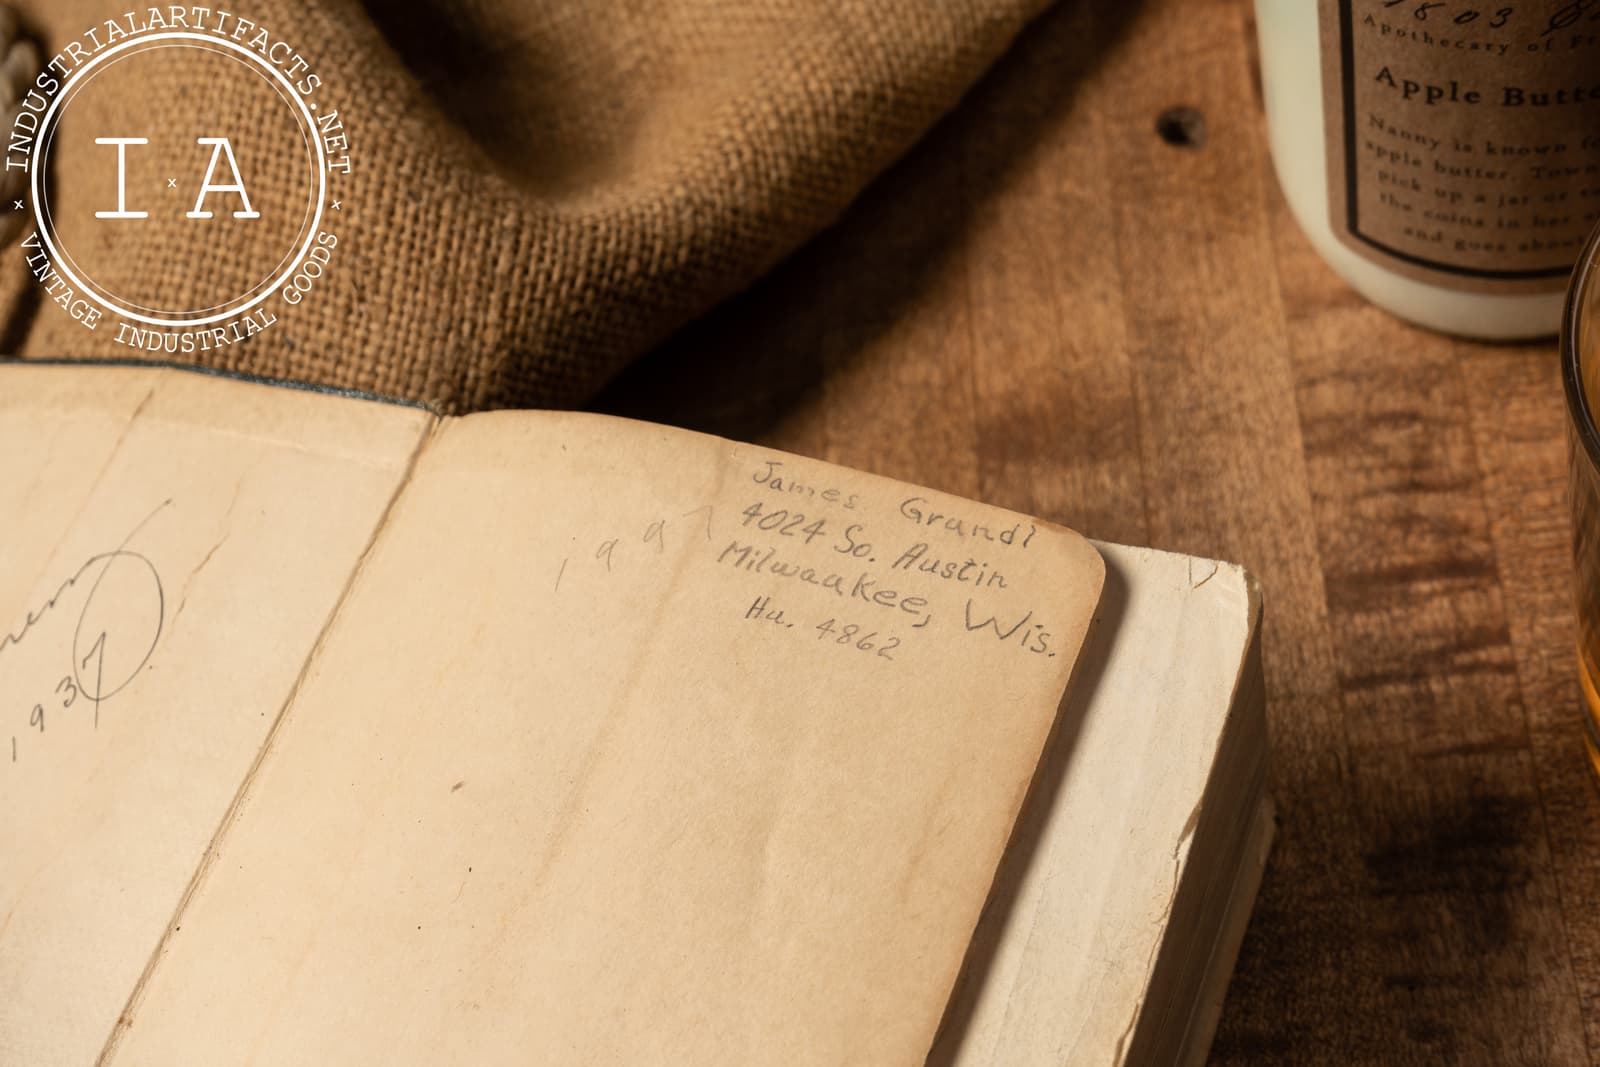 INDUSTRIALARTIFACTS.NET
I x A
VINTAGE INDUSTRIAL GOODS
1803
Apothecary of
Apple Butte
Nanny is known
apple butter. Town
pick up a jar or
the coins in her
and goes about
1937
1997
James Grandl
4024 So. Austin
Milwaukee, Wis.
Hu. 4862